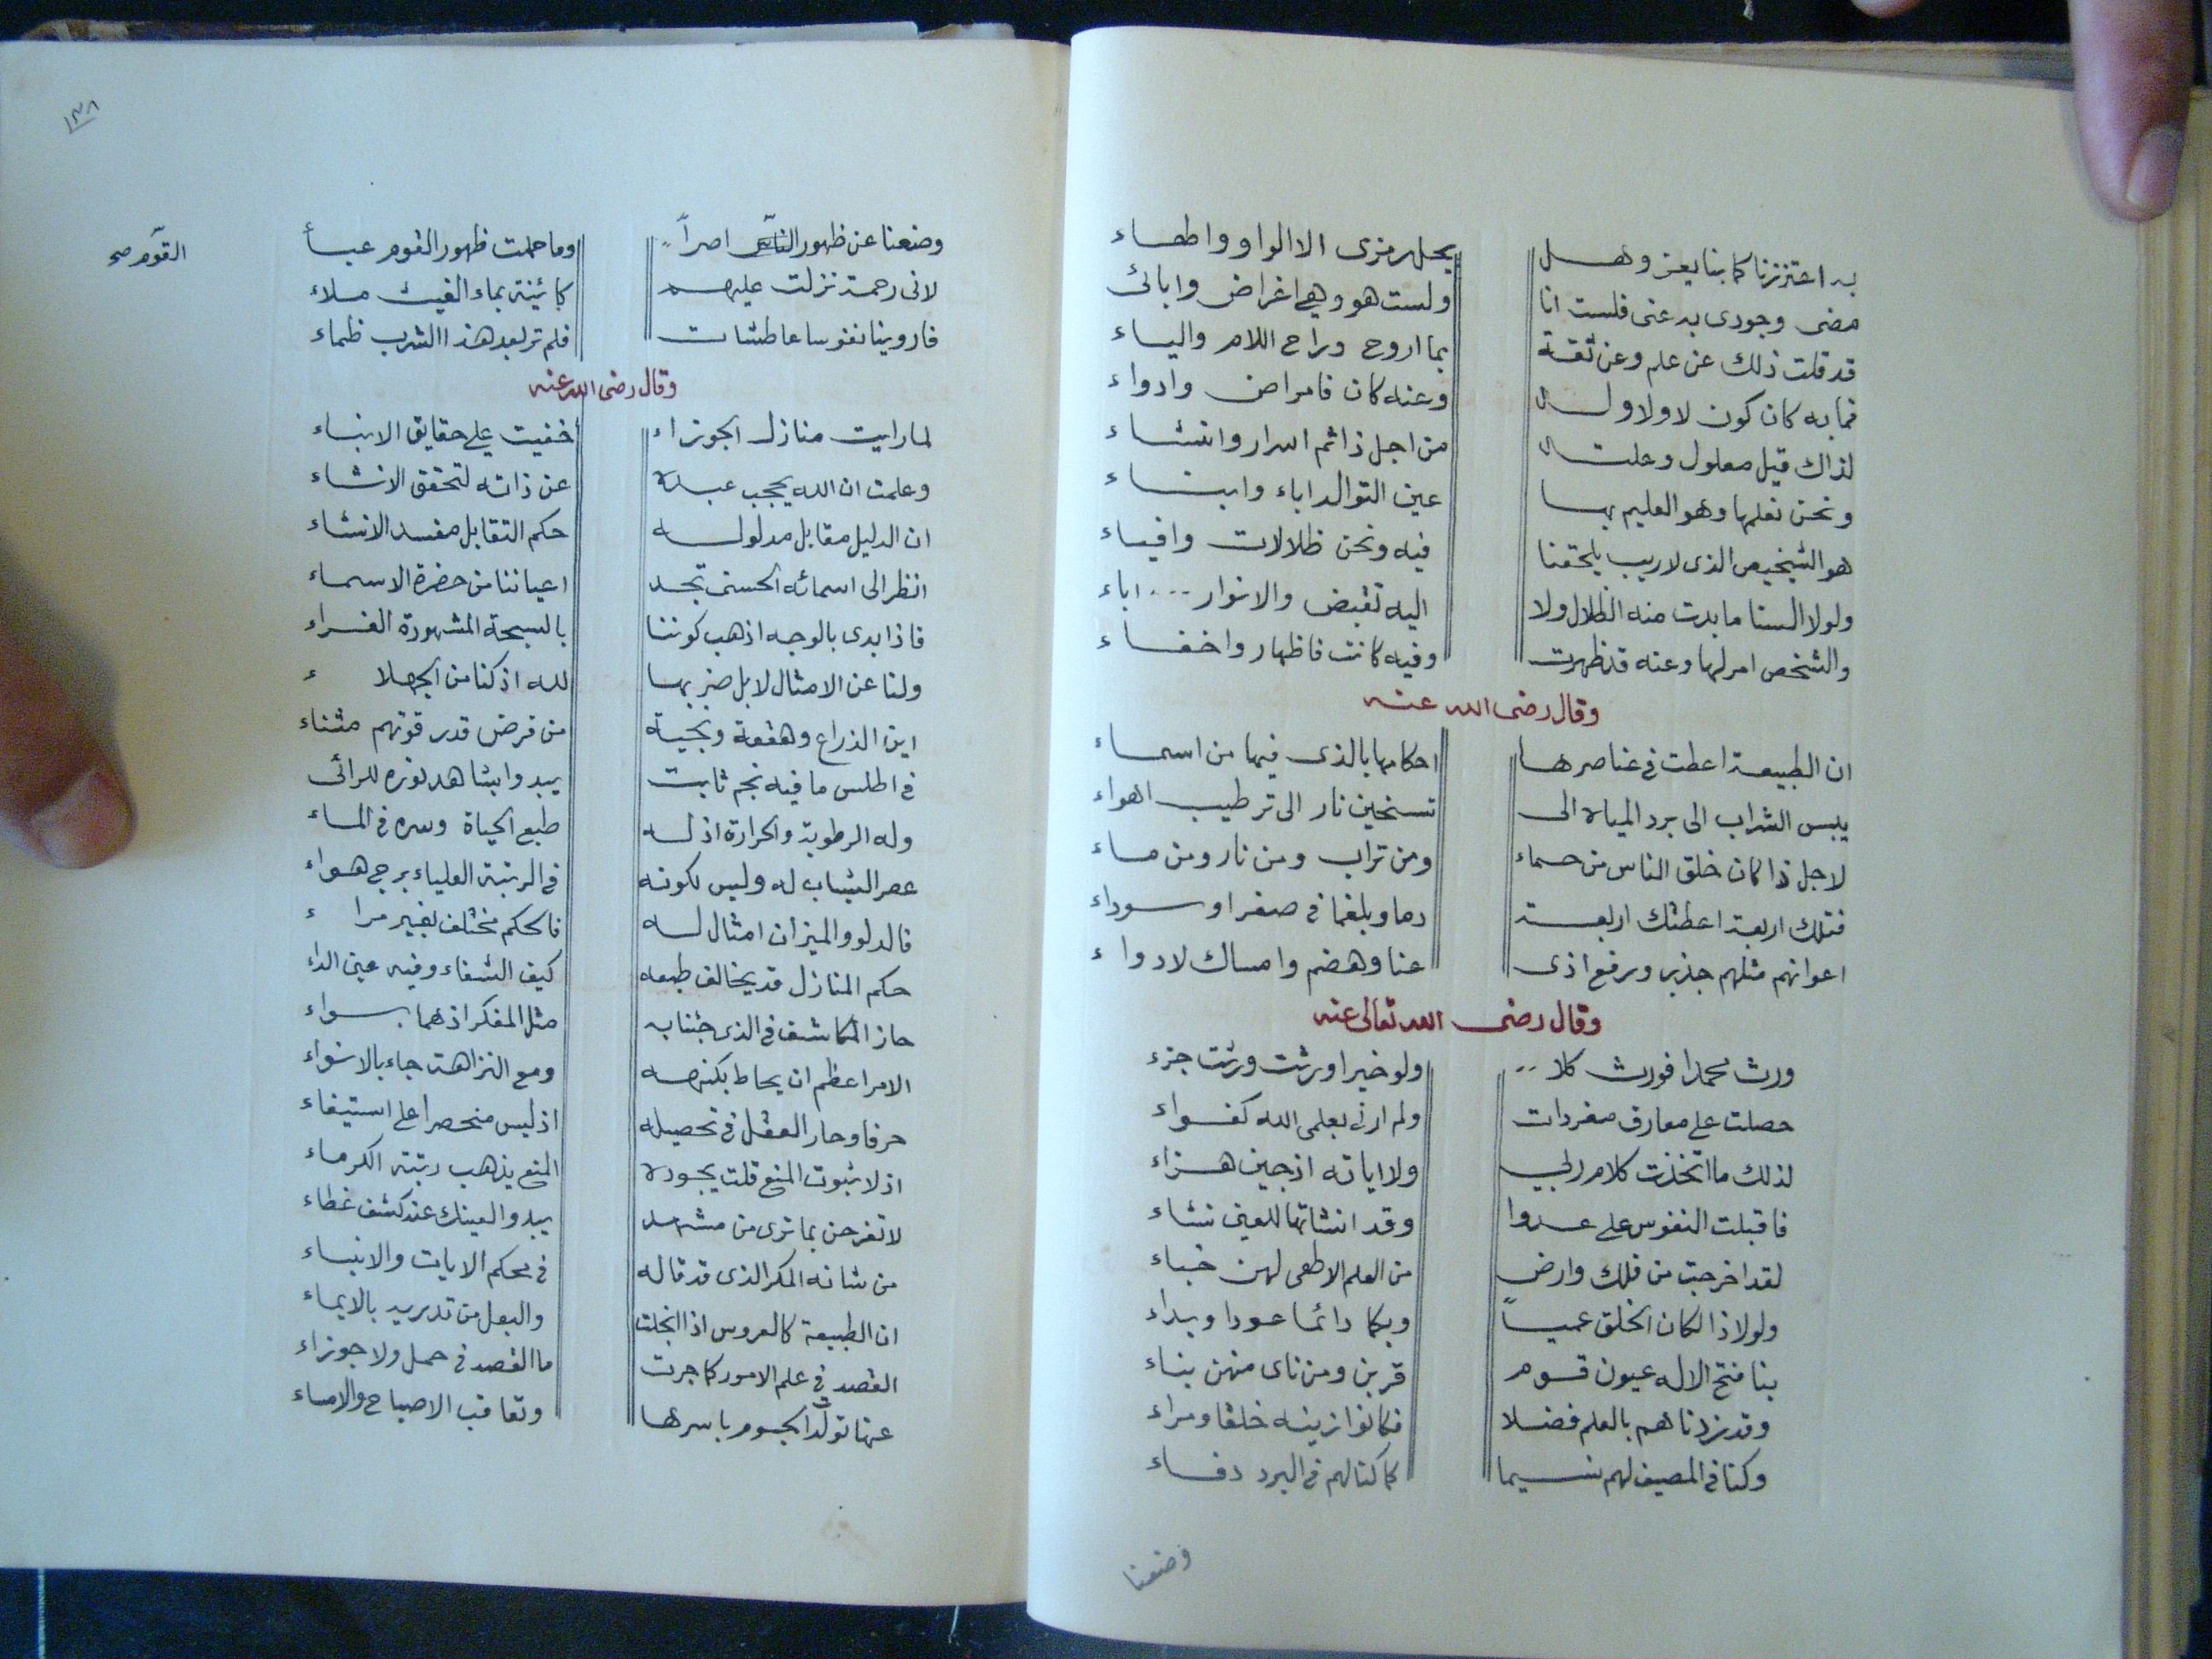 به اعتززنا كما بنا يعز وهل يحل رمزى الا الواو واطهاء
مضى وجودى به عنى فلست انا ولست هو وهي اغراض وابائ
قد قلت ذلك عن علم وعن ثقة بما اروح وراح اللام والياء
فما به كان كون لا ولا ول وعنه كان فامراض وادواء
لذاك قيل معلول وعلت من اجل ذا ثم اسرار وانشاء
ونحن نعلمها وهو العليم بها عين التوالد اباء وابناء
هو الشخيص الذى لاريب يلحقنا فيه ونحن ظلالات وافياء
ولولا السنا ما بدت منه الظلال ولا اليه تقبض والانوار اباء
والشخص امر لها وعنه قد ظهرت وفيه كانت فاظهار واخفاء
وقال رضى الله عنه
ان الطبيعة اعطت فى عناصرها احكامها بالذى فيها من اسماء
يبس التراب الى برد المياه الى تسخين نار الى ترطيب اهواء
لاجل ذا كان خلق الناس من حماء ومن تراب ومن نار ومن ماء
فتلك اربعة اعطتك اربعة دما وبلغما فى صفرا وسوداء
اعوانهم مثلهم جذب ورفع اذى عنا وهضم وامساك لادواء
وقال رضى الله تعالى عنه
ورث محمدا فورث كلا ولو خيرا ورثت ورثت جزء
حصلت على معارف مفردات ولم ار فى بعلمى الله كفواء
لذلك ما اتخذت كلام ربي ولا اياته اذ جين هزاء
فاقبلت النفوس على عدوا وقد انشاتها للعين نشاء
لقد اخرجت من فلك وارض من العلم الاطهى لهن خباء
ولولا ذا لكان الخلق عميا وبكما دائما عودا وبداء
بنا فتح الاله عيون قوم قربن ومن ناى منهن بناء
وقد زدناهم بالعلم فضلا فكانوا زينه خلقا ومراء
وكنا فى المصيف لهم نسيما كما كنا لهم فى البرد دفاء
وضعنا
١٣٨
وضعنا عن ظهور الناس اصراً وما حملت ظهور القوم عبأ
القوم صح
لانى رحمة نزلت عليهم كائنة بماء الغيث ملاء
فاروينا نفوسا عاطشات فلم تر بعد هذا الشرب ظماء
وقال رضى الله عنه
لما رايت منازل الجوزاء خفيت على حقايق الانباء
وعلمت ان الله يحجب عبده عن ذاته لتحقق الانشاء
ان الدليل مقابل مدلوله حكم التقابل مفسد الانشاء
انظر الى اسمائه الحسنى تجد اعياننا من حضرة الاسماء
فاذا بدى بالوجه اذهب كوننا بالسبحة المشهورة الغراء
ولنا عن الامثال لا بل ضربها لله اذ كنا من الجهلاء
اين الذراع وهقعة وتحية من فرض قدر قوتهم مثناء
فى اطلس ما فيه نجم ثابت يبدوا بشاهد نوره للرائى
وله الرطوبة والحرارة اذ له طبع الحياة وسره فى الماء
عصر الشباب له وليس لكونه فى الرتبة العلياء برج هواء
فالدلو والميزان امثال له فالحكم مختلف بغير مراء
حكم المنازل قد يخالف طبعه كيف الشفاء وفيه عين الداء
حاز المكاشف فى الذى جئنا به مثل المفكر اذ هما بسواء
الامر اعظم ان يحاط بكنهه ومع النزاهة جاء بالانواء
حرفا وحار العقل فى تحصيله اذ ليس منحصرا على استيفاء
اذ لا بثبوت المنع قلت بجوده المنع يذهب رتبة الكرماء
لا تفرحن بما ترى من مشهد يبدو العينك عند كشف غطاء
من شانه المكر الذى قد قاله فى محكم الايات والانباء
ان الطبيعة كالعروس اذا انجلت والبعل من تدريه بالايماء
القصد فى علم الامور كما جرت ما القصد فى حمل ولا جوزاء
عنها تولد الجسوم باسرها وتعاقب الاصباح والامساء